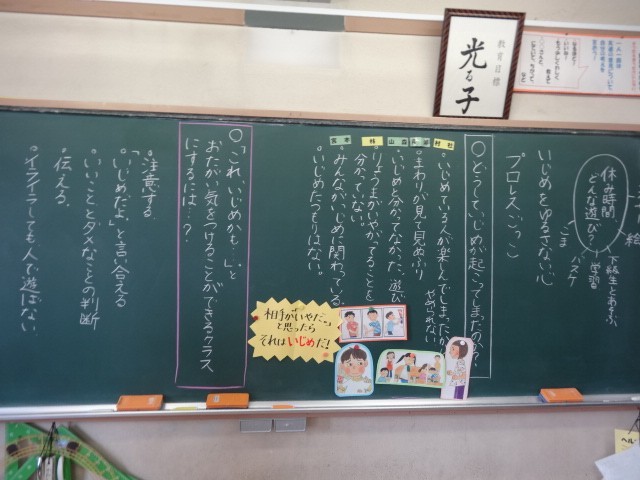 教育目標
光る子
休み時間、
どんな遊び?
下級生とあそぶ
学習
バスケ
こま
絵
いじめをゆるさない心
プロレスごっこ
○どうしていじめが起こってしまったのか?
・いじめている人が楽しんでしまったから
やめられない
・まわりが見て見ぬふり
・いじめと分かってなかった、遊び
・りょうたがいやがってることを
分かっていない。
・みんながいじめに関わっている。
・いじめたつもりはない。
相手がいやだっ
と思ったら
それはいじめだ!
○「これ、いじめかも…。」と
おたがい気をつけることができるクラス
にするには…?
・注意する
・「いじめだよ。」と言い合える
・いいこととダメなことの判断
・伝える。
・イライラしても人で遊ばない